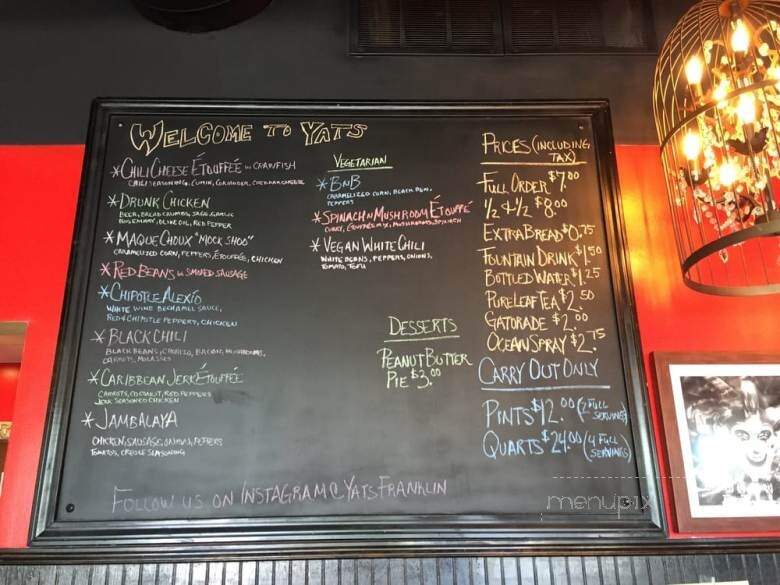 WELCOME TO YATS
*CHILI CHEESE ÉTOUFFÉE W CRAWFISH
CHILI SEASONING, CUMIN, CORIANDER, CHEDDAR CHEESE
*DRUNK CHICKEN
BEER, BREAD CRUMBS, SAGE, GARLIC
ROSEMARY, OLIVE OIL, RED PEPPER
*MAQUE CHOUX "MOCK SHOO"
CARAMELIZED CORN, PEPPERS, ÉTOUFFÉE, CHICKEN
*RED BEANS W SMOKED SAUSAGE
*CHIPOTLE ALEXIO
WHITE WINE BECHAMEL SAUCE,
RED & CHIPOTLE PEPPERS, CHICKEN
*BLACK CHILI
BLACK BEANS, CHORIZO, BACON, MUSHROOMS,
CARROTS, MOLASSES
*CARIBBEAN JERK ÉTOUFFÉE
CARROTS, COCONUT, RED PEPPERS
JERK SEASONED CHICKEN
*JAMBALAYA
CHICKEN, SAUSAGE, ONIONS, PEPPERS
TOMATOS, CREOLE SEASONING
VEGETARIAN
*BNB
CARAMELIZED CORN, BLACK BEAN,
PEPPERS
*SPINACH N MUSHROOM ÉTOUFFÉ
CURRY, MUSHROOMS, SPINACH
*VEGAN WHITE CHILI
WHITE BEANS, PEPPERS, ONIONS,
TOMATO, TOFU
DESSERTS
PEANUT BUTTER
PIE $3.00
PRICES (INCLUDING
TAX)
FULL ORDER $7.00
1/2 & 1/2 $8.00
EXTRA BREAD $0.75
FOUNTAIN DRINK $1.50
BOTTLED WATER $1.25
PURELEAF TEA $2.50
GATORADE $2.00
OCEAN SPRAY $2.75
CARRY OUT ONLY
PINTS $12.00 (2 FULL
SERVINGS)
QUARTS $24.00 (4 FULL
SERVINGS)
FOLLOW US ON INSTAGRAM @YATSFRANKLIN
menupix